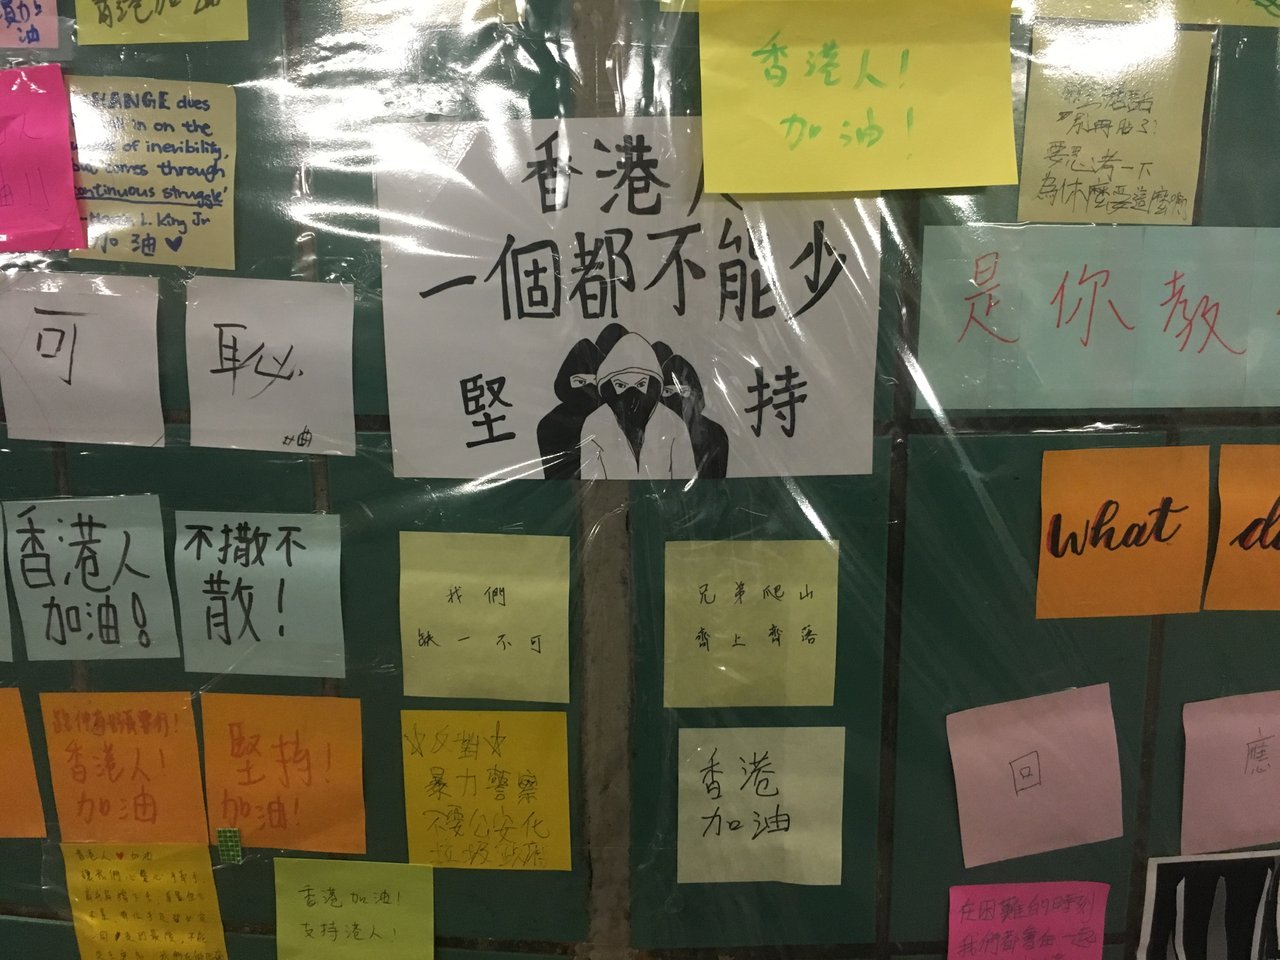 加油
香港加油
CHANGE does
in on the
of inevibility,
comes through
continuous struggle'
L. King Jr
加油♥
香港人!
加油!
別再貼了!
要思考一下
為什麼要這麼啊
香港人
一個都不能少
堅 持
是你教
可
恥.
what
do
香港人
加油!
不撒不
散!
我們
缺一不可
兄弟爬山
齊上齊落
香港人!
加油
堅持!
加油!
☆反對☆
暴力警察
不要公安化
垃圾政府
香港
加油
回
應
香港人♥加油
香港加油!
支持港人!
在困難的時刻
我們都會在一起